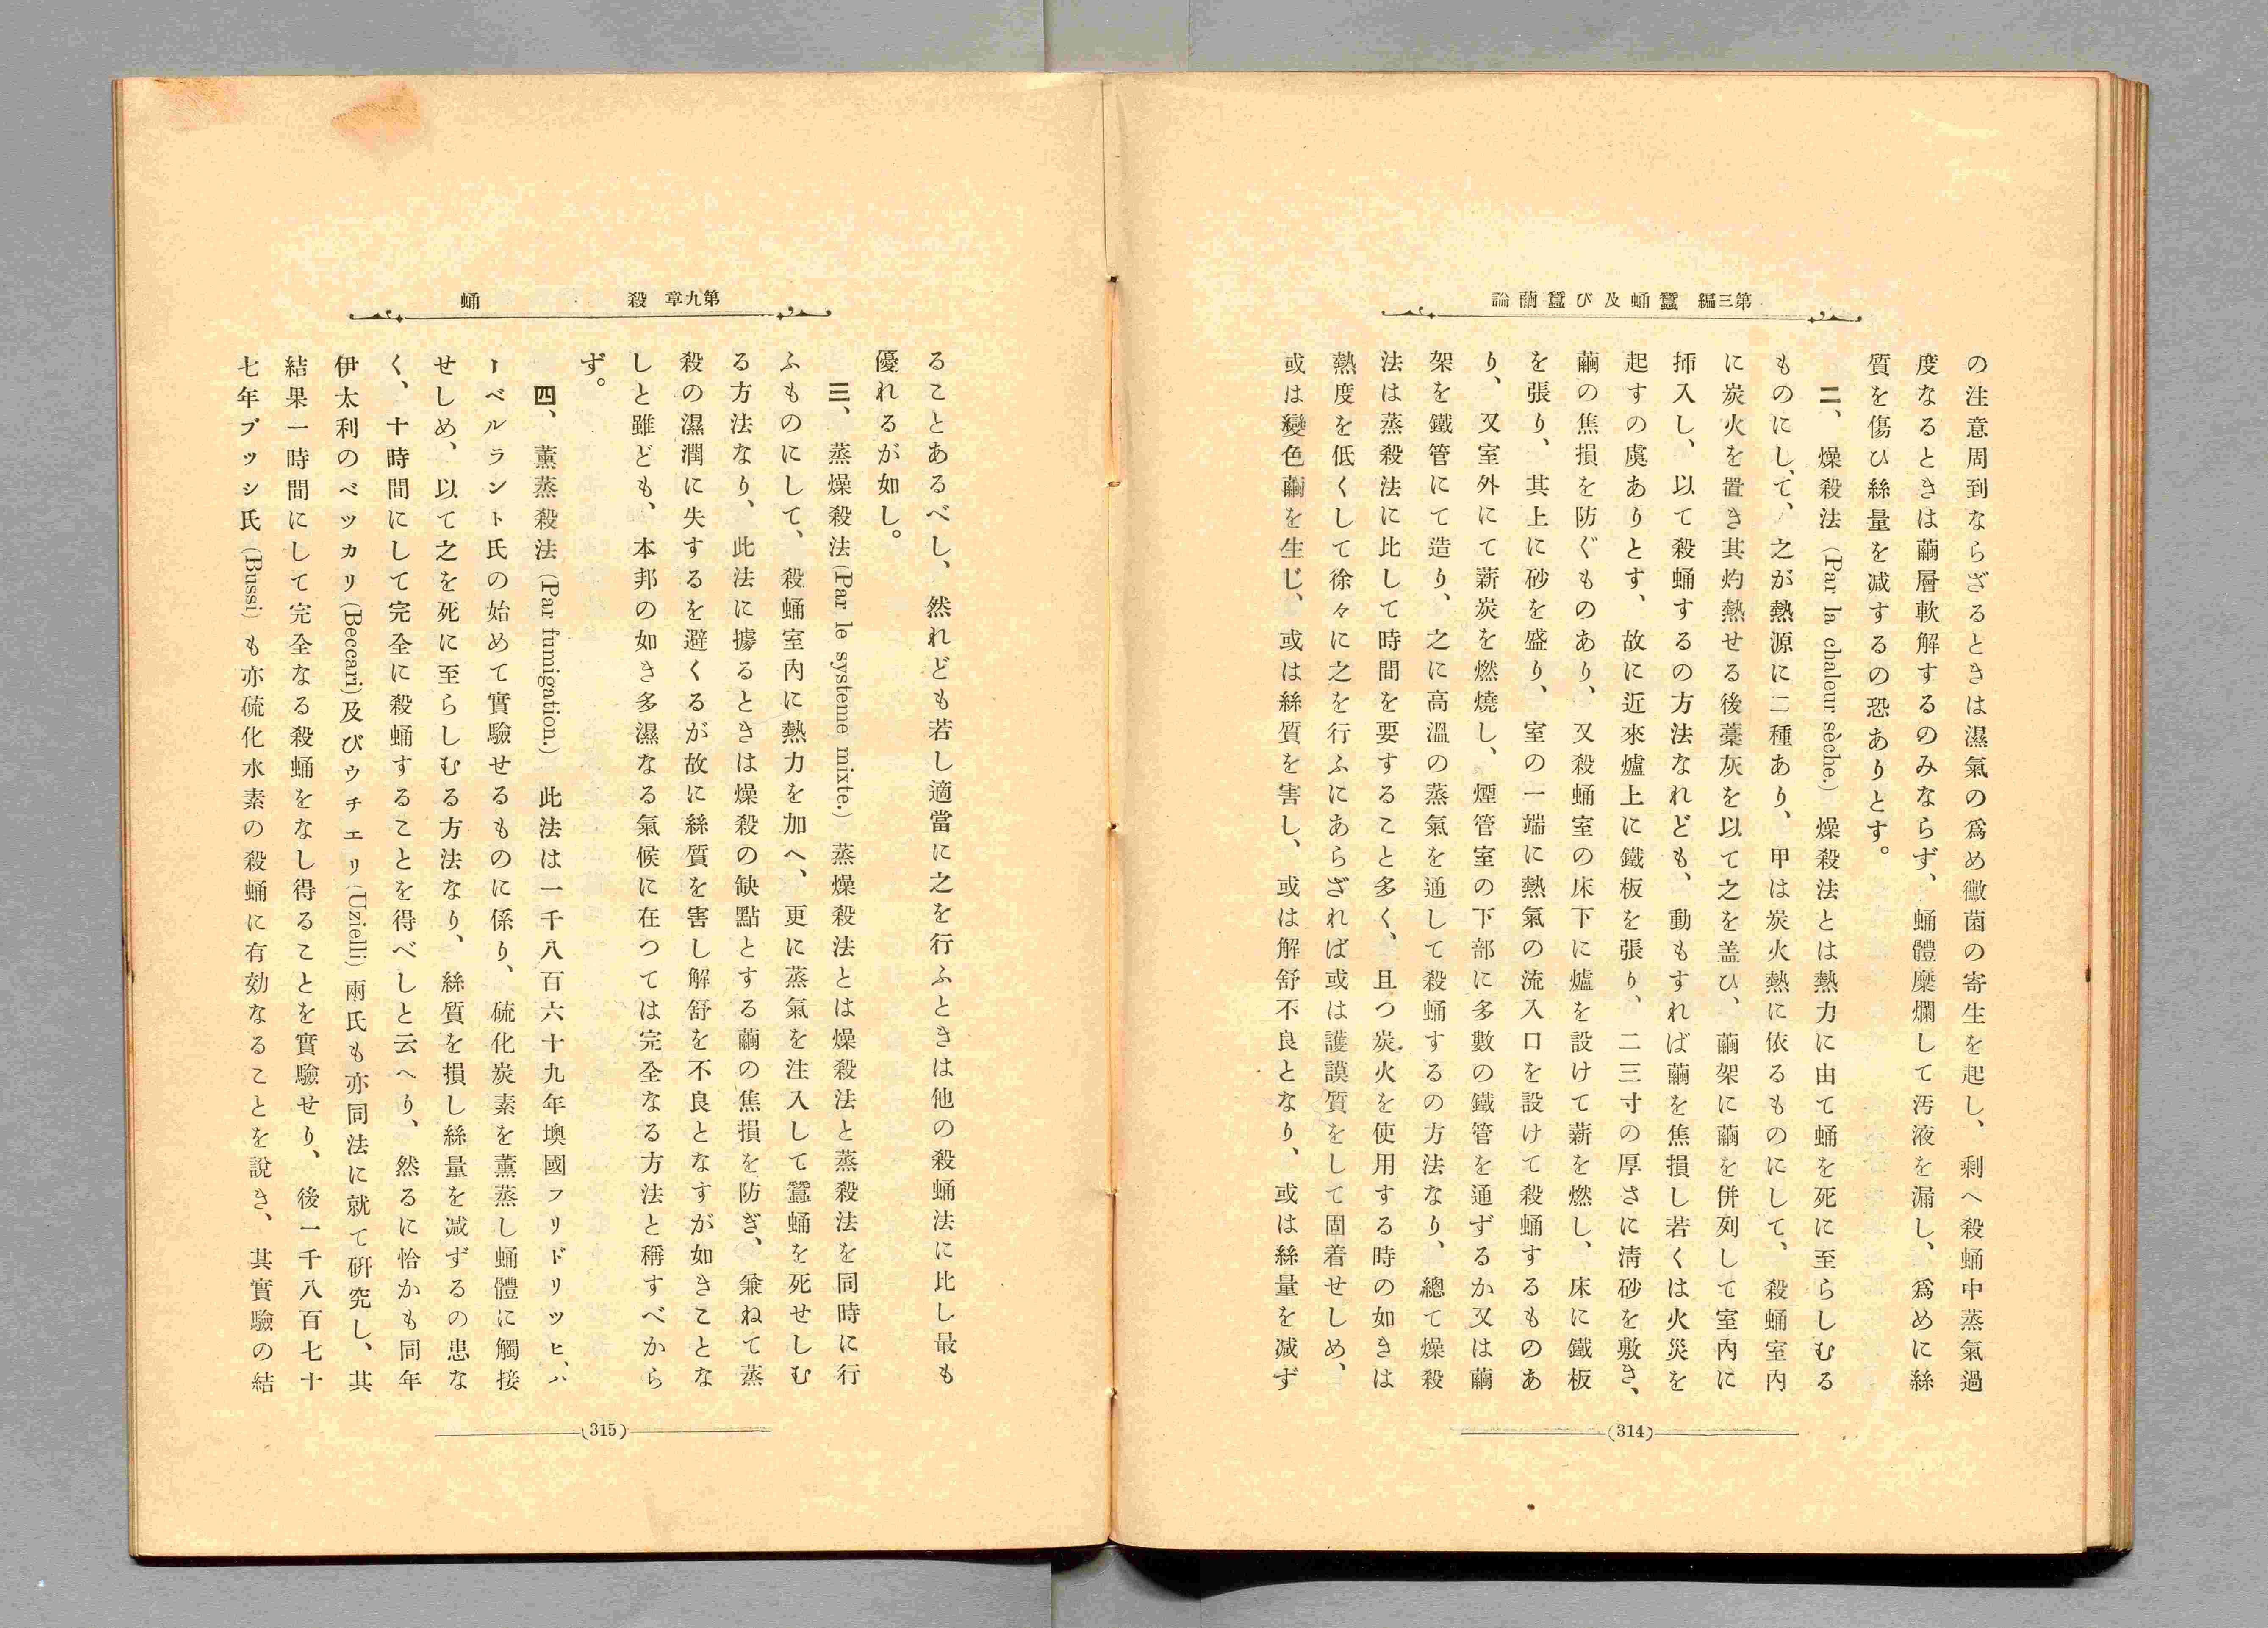 第三編 蠶蛹及び蠶繭論
の注意周到ならざるときは濕氣の爲め黴菌の寄生を起し、剩へ殺蛹中蒸氣過
度なるときは繭層軟解するのみならず、蛹體糜爛して汚液を漏し、爲めに絲
質を傷ひ絲量を減するの恐ありとす。
二、燥殺法 (Par la chaleur sêche.) 燥殺法とは熱力に由て蛹を死に至らしむる
ものにして、之が熱源に二種あり、甲は炭火熱に依るものにして、殺蛹室内
に炭火を置き其灼熱せる後藁灰を以て之を盖ひ、繭架に繭を併列して室内に
挿入し、以て殺蛹するの方法なれども、動もすれば繭を焦損し若くは火災を
起すの虞ありとす、故に近來爐上に鐵板を張り、二三寸の厚さに淸砂を敷き、
繭の焦損を防ぐものあり、又殺蛹室の床下に爐を設けて薪を燃し、床に鐵板
を張り、其上に砂を盛り、室の一端に熱氣の流入口を設けて殺蛹するものあ
り、又室外にて薪炭を燃燒し、煙管室の下部に多數の鐵管を通ずるか又は繭
架を鐵管にて造り、之に高溫の蒸氣を通して殺蛹するの方法なり、總て燥殺
法は蒸殺法に比して時間を要すること多く、且つ炭火を使用する時の如きは
熱度を低くして徐々に之を行ふにあらざれば或は護謨質をして固着せしめ、
或は變色繭を生じ、或は絲質を害し、或は解舒不良となり、或は絲量を減ず
(314)
第九章 殺蛹
ることあるべし、然れども若し適當に之を行ふときは他の殺蛹法に比し最も
優れるが如し。
三、蒸燥殺法 (Par le systeme mixte.) 蒸燥殺法とは燥殺法と蒸殺法を同時に行
ふものにして、殺蛹室内に熱力を加へ、更に蒸氣を注入して蠶蛹を死せしむ
る方法なり、此法に據るときは燥殺の缺點とする繭の焦損を防ぎ、兼ねて蒸
殺の濕潤に失するを避くるが故に絲質を害し解舒を不良となすが如きことな
しと雖ども、本邦の如き多濕なる氣候に在つては完全なる方法と稱すべから
ず。
四、薰蒸殺法 (Par fumigation.) 此法は一千八百六十九年墺國フリドリッヒ、ハ
ーベルラント氏の始めて實驗せるものに係り、硫化炭素を薰蒸し蛹體に觸接
せしめ、以て之を死に至らしむる方法なり、絲質を損し絲量を減ずるの患な
く、十時間にして完全に殺蛹することを得べしと云へり、然るに恰かも同年
伊太利のベッカリ (Beccari) 及びウチエリ (Uzielli) 兩氏も亦同法に就て硏究し、其
結果一時間にして完全なる殺蛹をなし得ることを實驗せり、後一千八百七十
七年ブッシ氏 (Bussi) も亦硫化水素の殺蛹に有効なることを說き、其實驗の結
(315)